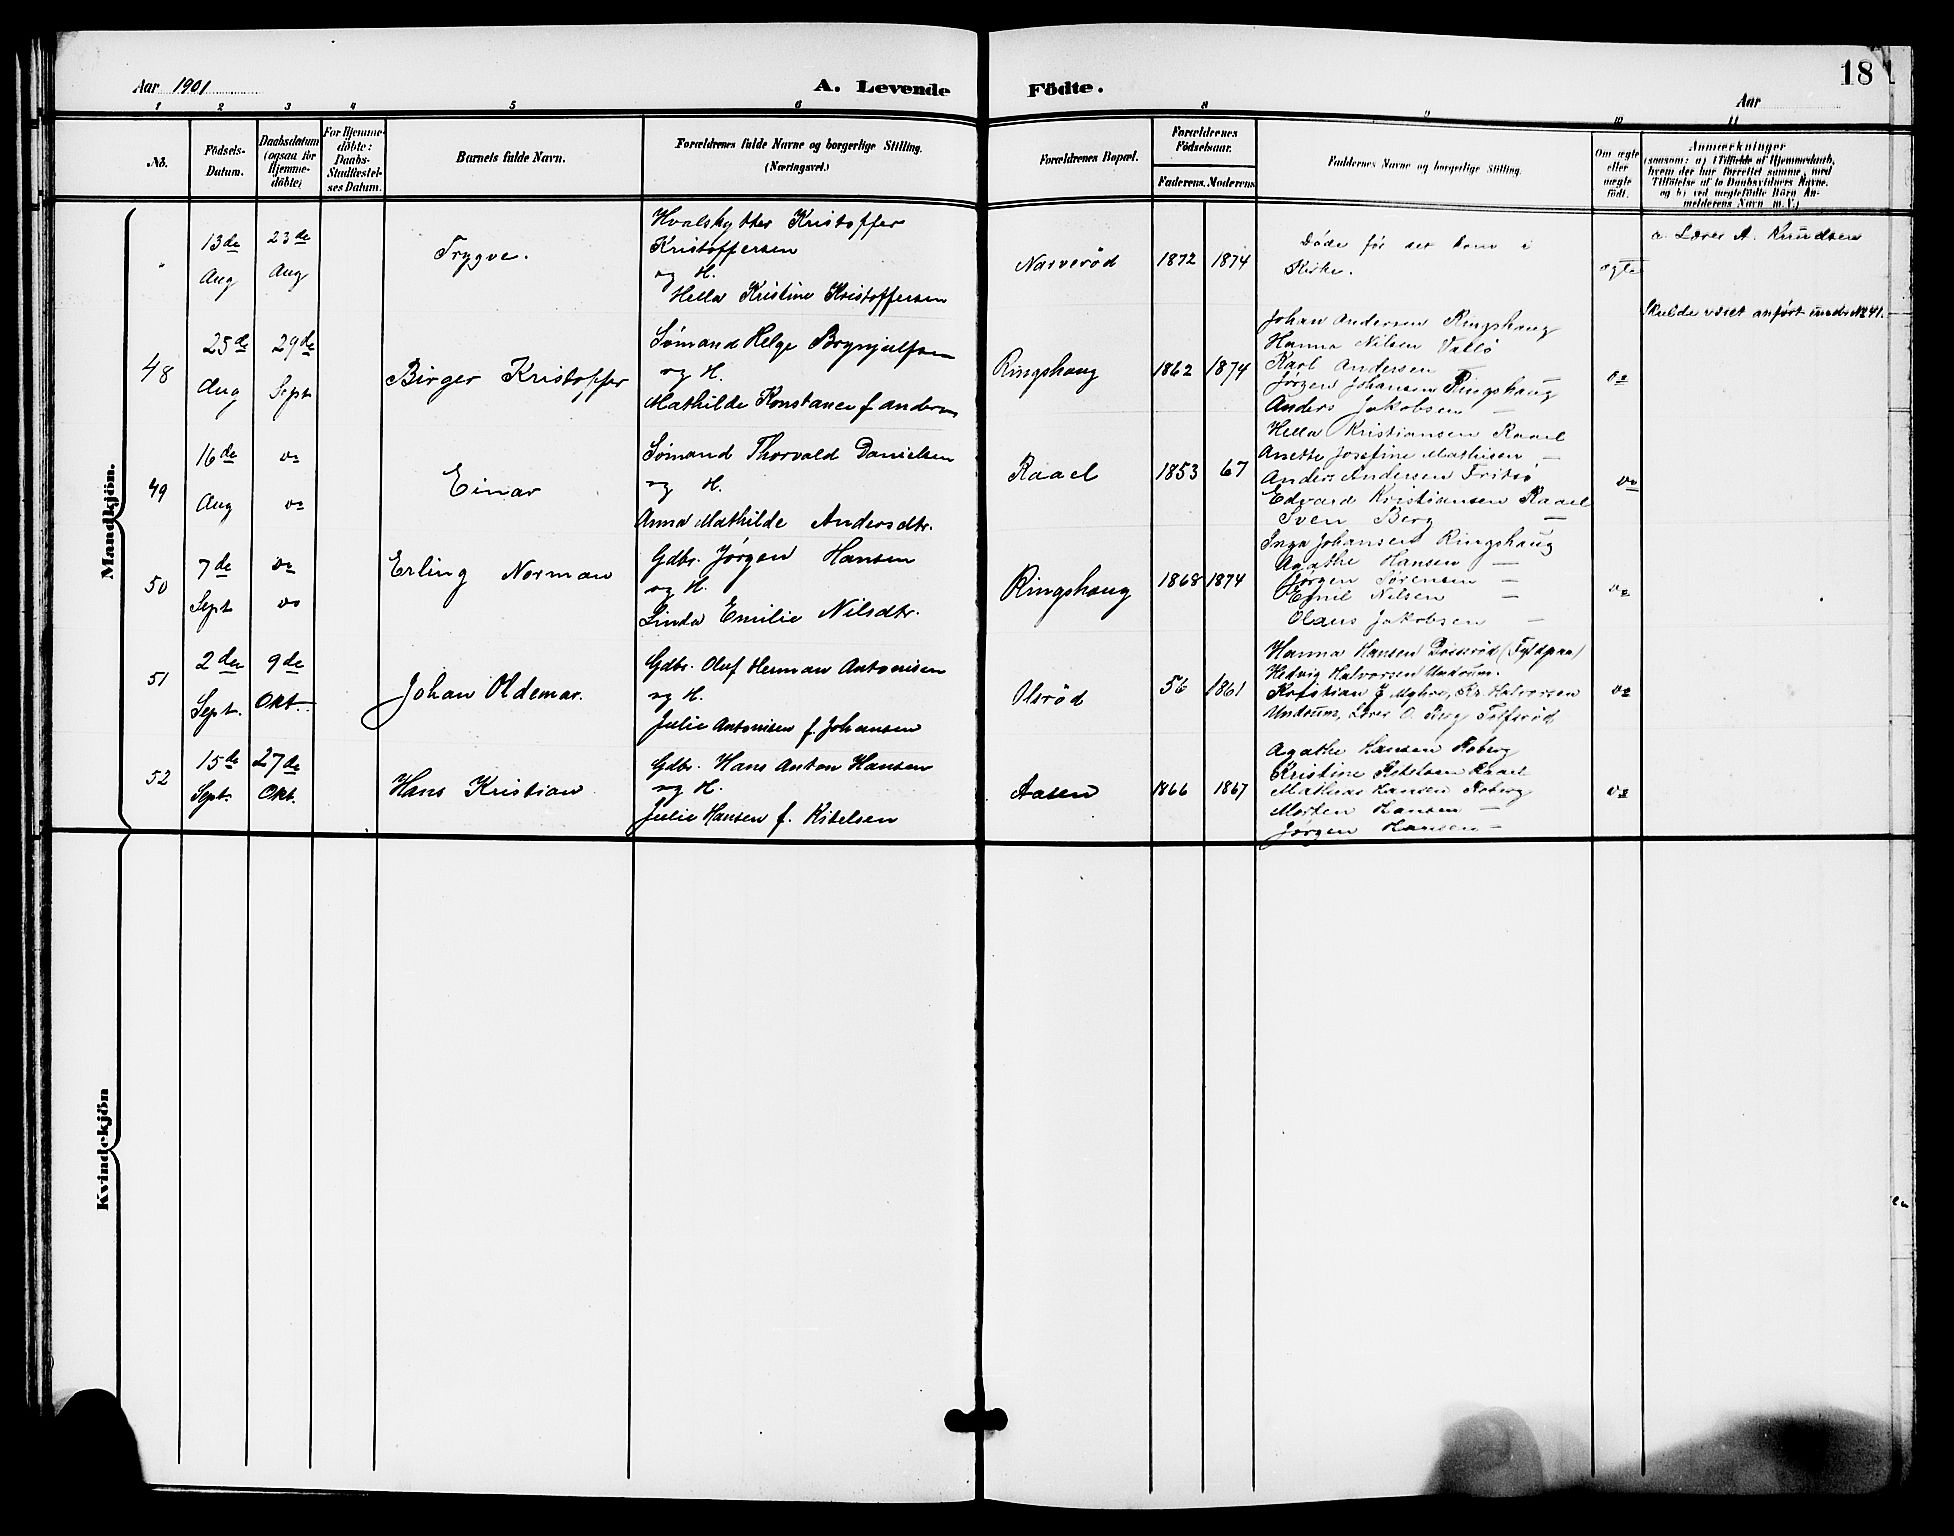 Aar 1901
A. Levende
Födte.
Aar
18
1 2 3 4 5 6 8 9 10 11
No.
Födsels-
Datum.
Daabsdatum
(ogsaa for
Hjemme-
døbte)
For Hjemme-
döbte:
Daabs-
Stadfæstel-
ses Datum.
Barnets fulde Navn.
Forældrenes fulde Navne og borgerlige Stilling.
(Næringsvei.)
Forældrenes Bopæl.
Forældrenes
Födselsaar.
Faderens. Moderens.
Faddernes Navne og borgerlige Stilling.
Om ægte
eller
uægte
født.
Anmærkninger
(saasom: a) i Tilfælde af Hjemmedaab,
hvem der har forrettet samme, med
Tilföielse af to Daabsvidners Navne.
og b) ved uægtefödte Börn An-
melderens Navn m.V.)
Mandkjön.
"
13de
Aug
23de
Aug
Trygve.
Hvalskytter Kristoffer
Kristoffersen
og H.
Hella Kristine Kristoffersen
Narverød
1872
1874
Døde før det kom i
Kirke.
ægte
a. Lærer A. Knudsen
Skulde været anført under No 41.
48
25de
Aug
29de
Sept
Birger Kristoffer
Sømand Helge Brynjulfsen
og H.
Mathilde Konstance f. Anders
Ringshaug
1862
1874
Johan Andersen Ringshaug
Hanna Nilsen Vallø
Karl Andersen —
Jørgen Johansen Ringshaug
Anders Jakobsen —
do
49
16de
Aug
do
do
Einar
Sømand Thorvald Danielsen
og H.
Anna Mathilde Andersdtr.
Raael
1853
67
Hella Kristiansen Raael
Anette Josefine Mathisen —
Anders Andersen Fritsø
Edvard Kristiansen Raael
Sven Berg —
do
50
7de
Sept
do
do
Erling Norman
Gdbr. Jørgen Hansen
og H.
Linda Emilie Nilsdtr.
Ringshaug
1868
1874
Inga Johansen Ringshaug
Agathe Hansen —
Jørgen Sørensen —
Emil Nilsen —
Olaus Jakobsen —
do
51
2den
Sept.
9de
Okt.
Johan Oldemar.
Gdbr. Oluf Herman Antonisen
og H.
Julie Antonisen f. Johansen
Olsrød
56
1861
Hanna Hansen (Fyldpaa)
Hedvig Halvorsen Undrum.
Kristian J. Myhre, Kr. Halvorsen
Undrum, Lærer O. Berg Tolfsrød
do
52
15de
Sept.
27de
Okt.
Hans Kristian
Gdbr. Hans Anton Hansen
og H.
Julie Hansen f. Kitelsen
Aasen
1866
1867
Agathe Hansen Roberg
Kristine Kitelsen Raael
Mathias Hansen Roberg
Morten Hansen —
Jørgen Hansen —
do
Kvindekjön